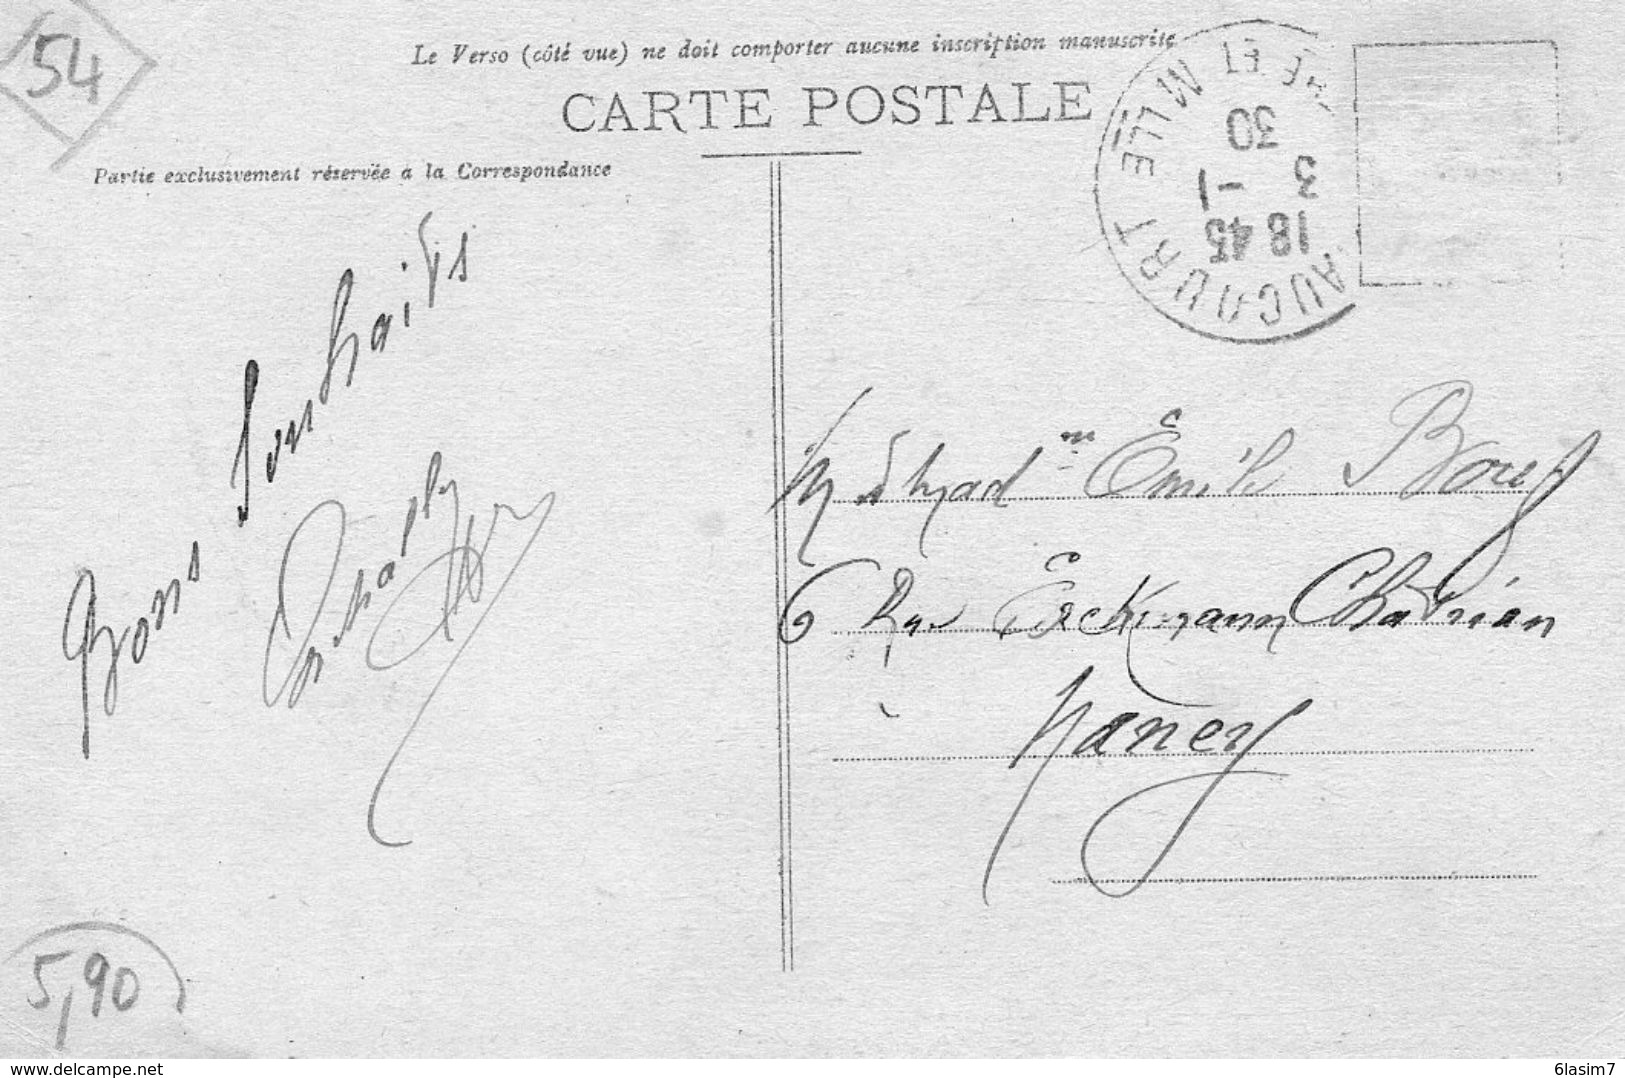 54
Le Verso (côté vue) ne doit comporter aucune inscription manuscrite
CARTE POSTALE
Partie exclusivement réservée à la Correspondance
AUCOURT
ET MLLE
18 45
3 -1
30
Bons Souhaits
Mr & Mad me Emile
6 Rue Erckmann Chatrian
Nancy
5,90
delcampe.net
6lasim7